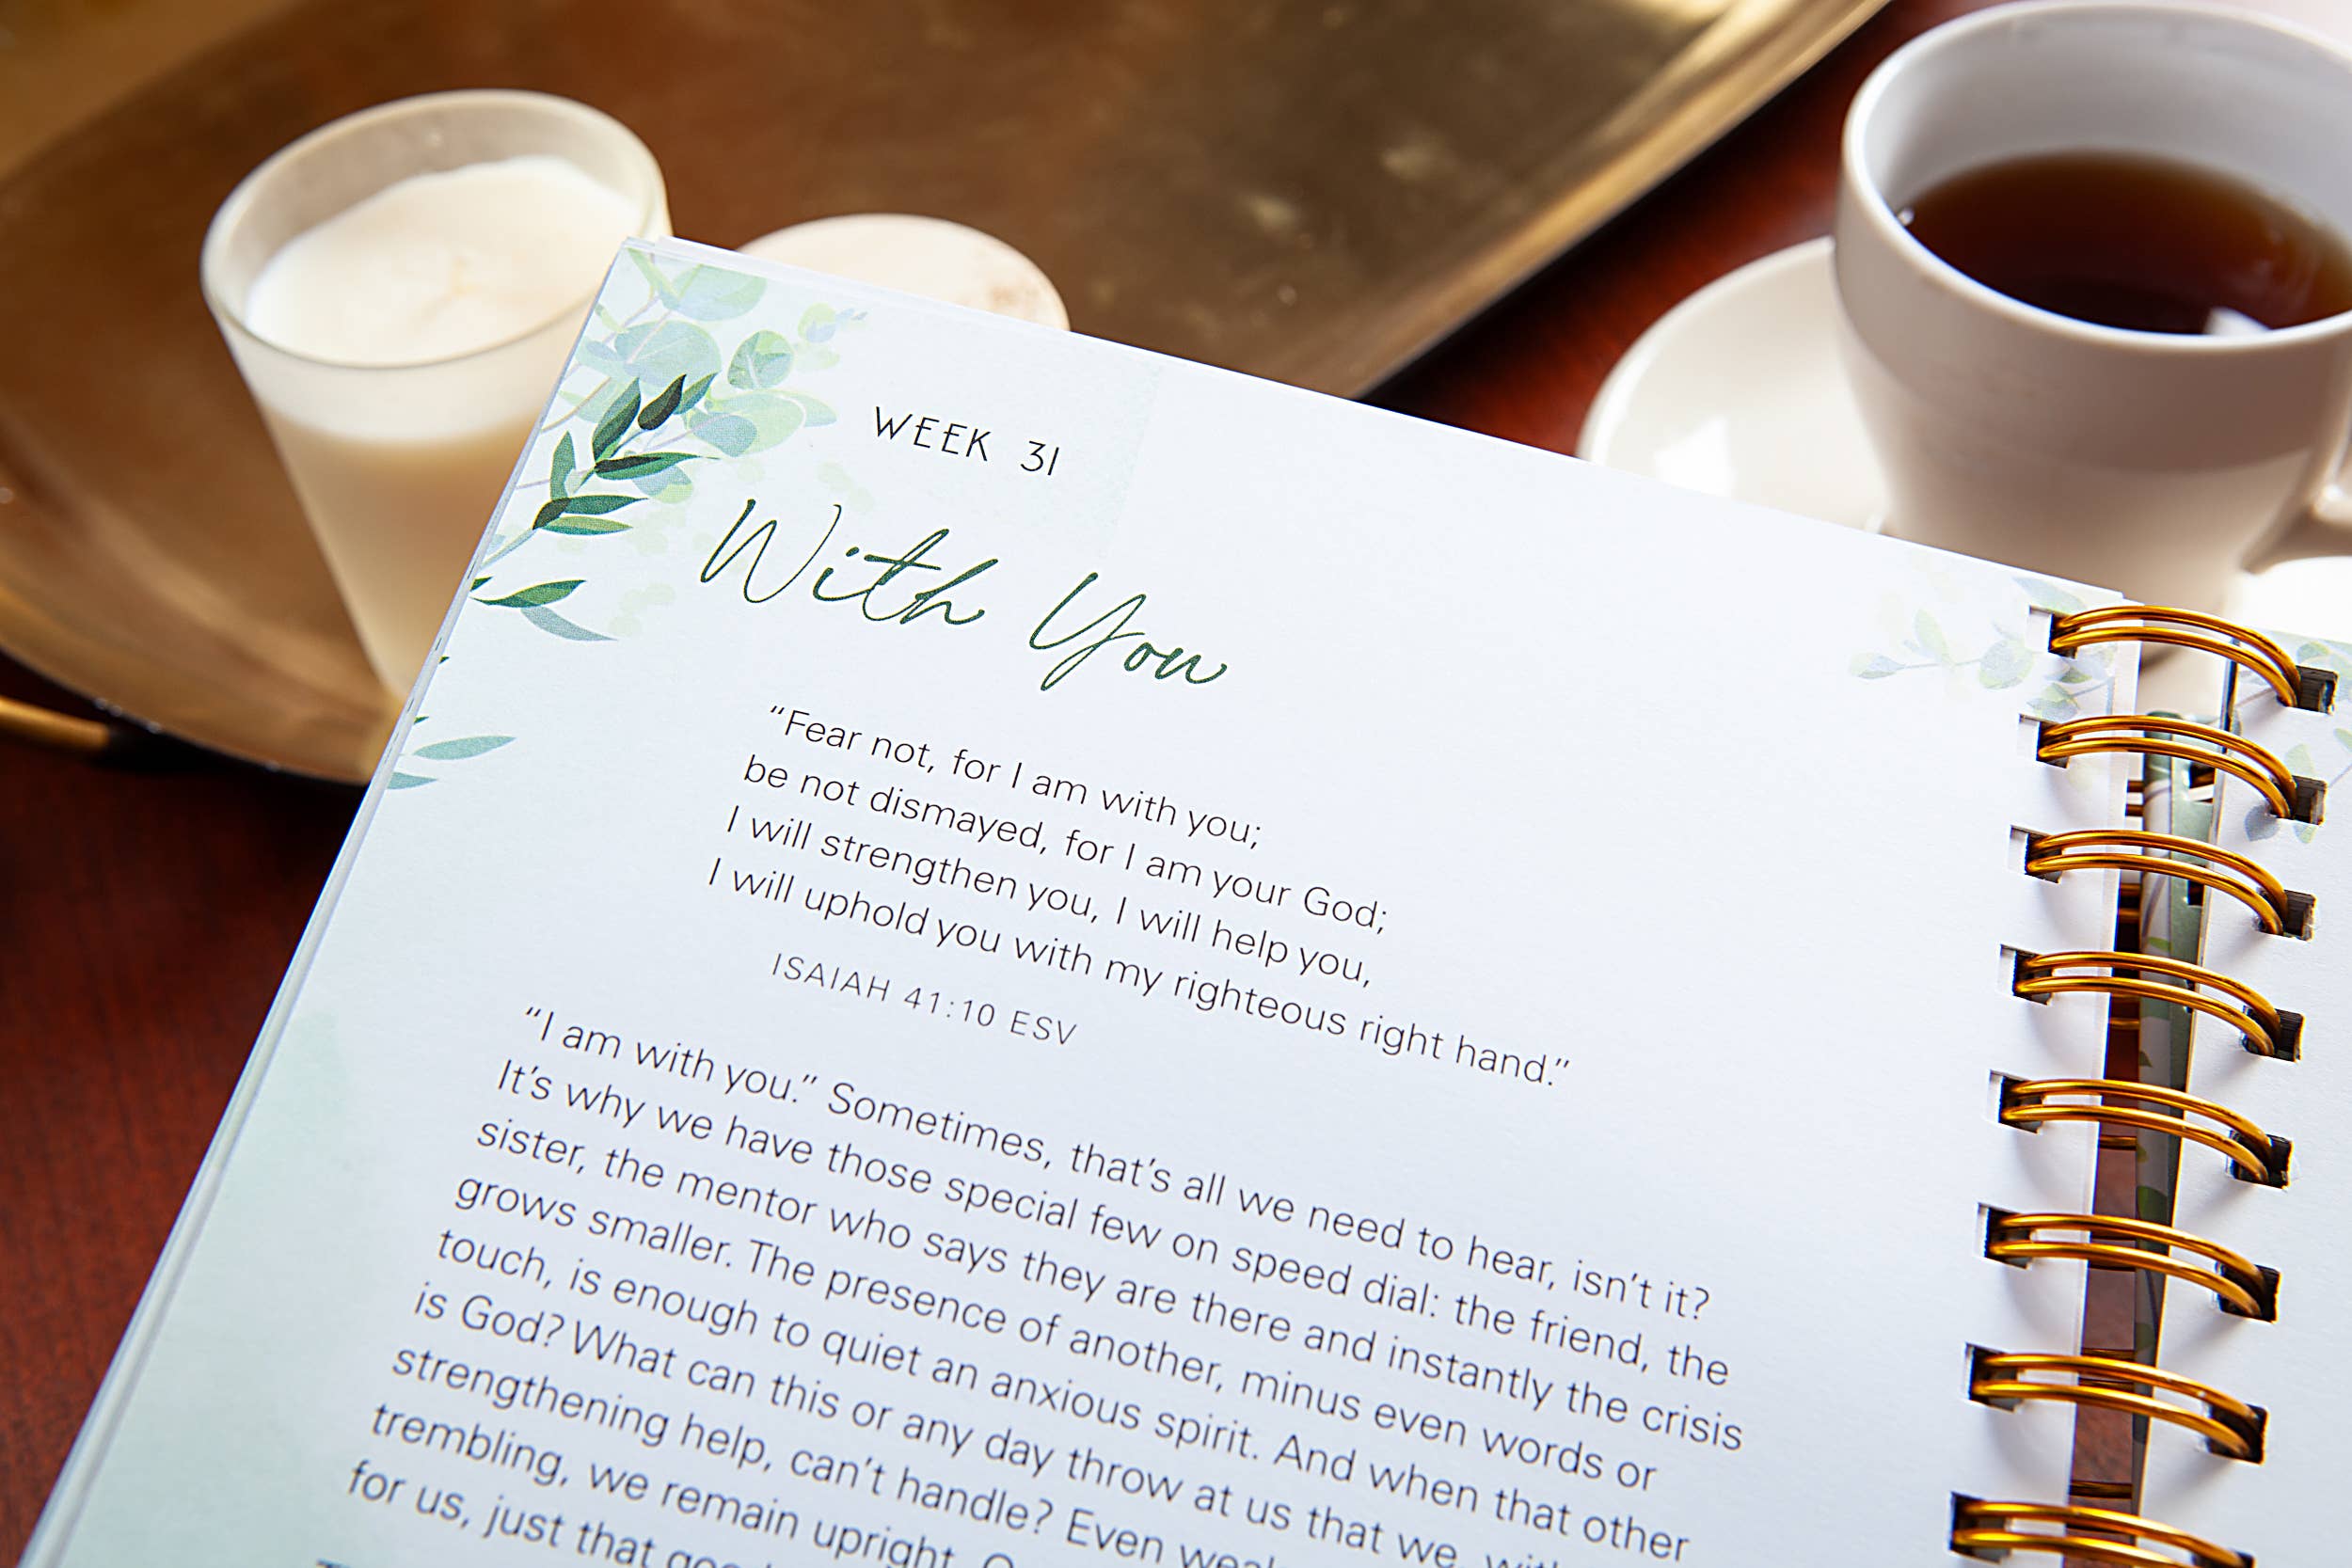 WEEK 31
With You
“Fear not, for I am with you;
be not dismayed, for I am your God;
I will strengthen you, I will help you,
I will uphold you with my righteous right hand.”
ISAIAH 41:10 ESV
“I am with you.” Sometimes, that’s all we need to hear, isn’t it?
It’s why we have those special few on speed dial: the friend, the
sister, the mentor who says they are there and instantly the crisis
grows smaller. The presence of another, minus even words or
touch, is enough to quiet an anxious spirit. And when that other
is God? What can this or any day throw at us that we,
strengthening help, can’t handle? Even
trembling, we remain upright.
for us, just that